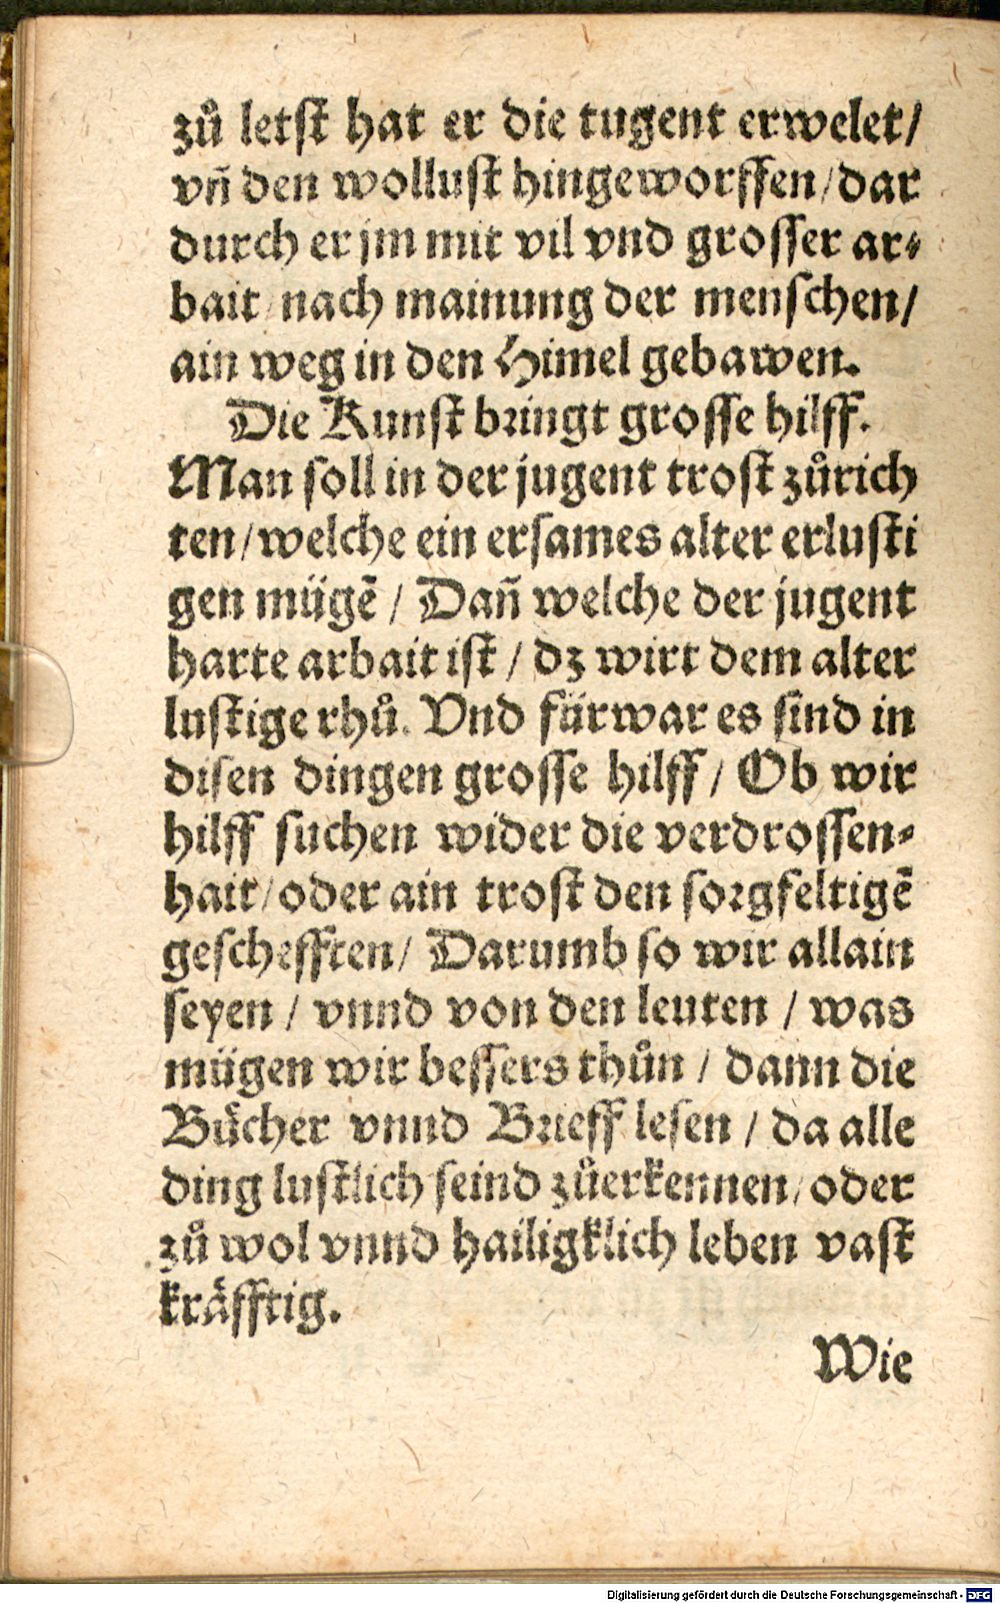 zů letſt hat er die tugent erwelet/
vñ den wolluſt hingeworffen/dar
durch er jm mit vil vnd groſſer ar⸗
bait/nach mainung der menſchen/
ain weg in den Himel gebawen.
Die Kunſt bringt groſſe hilff.
Man ſoll in der jugent troſt zůrich
ten/welche ein erſames alter erluſti
gen mügē / Dañ welche der jugent
harte arbait iſt / dz wirt dem alter
luſtige rhů. Vnd fürwar es ſind in
diſen dingen groſſe hilff / Ob wir
hilff ſuchen wider die verdroſſen⸗
hait/oder ain troſt den ſorgfeltigē
geſchefften/ Darumb ſo wir allain
ſeyen / vnnd von den leuten / was
mügen wir beſſers thůn / dann die
Bücher vnnd Brieff leſen / da alle
ding luſtlich ſeind zůerkennen/oder
zů wol vnnd hailigklich leben vaſt
kräfftig.
Wie
Digitalisierung gefördert durch die Deutsche Forschungsgemeinschaft - DFG